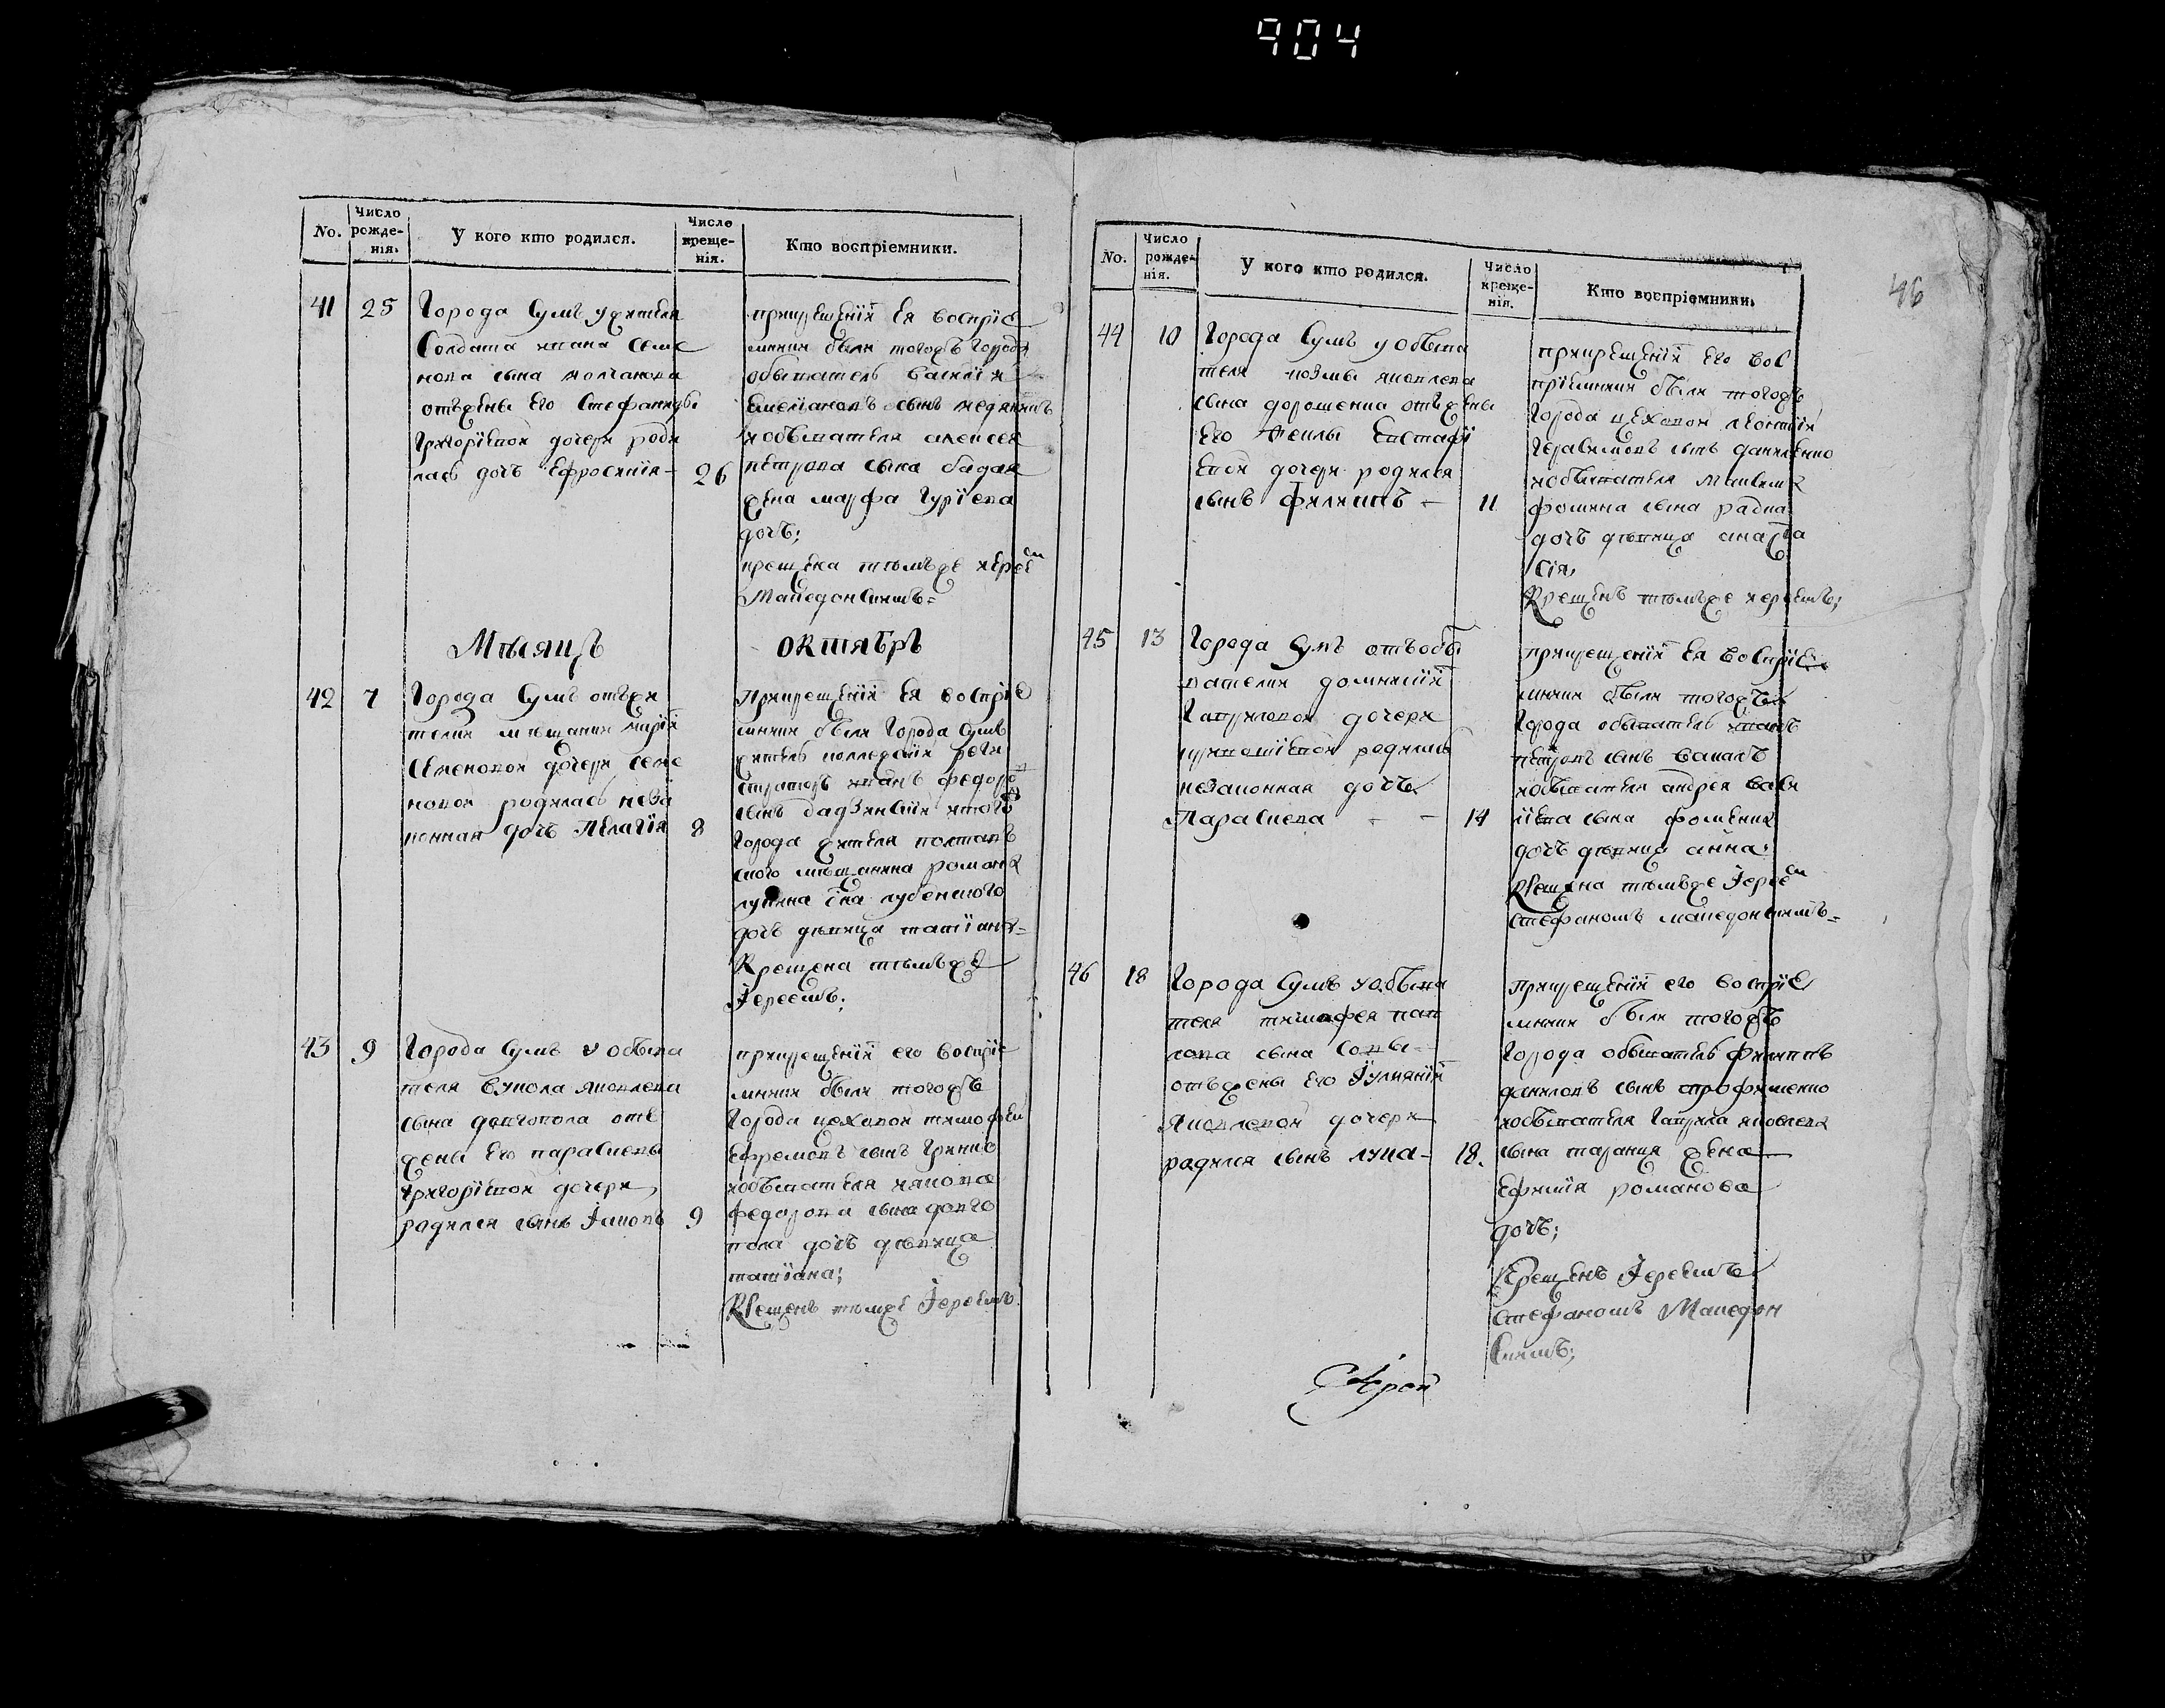 904
46
No.
Число рожде-нія.
У кого кто родился.
Число креще-нія.
Кто воспріемники.
41 25
Города Сумъ у жителя
Солдата ивана семе
нова сына колчанова
отъ жены его Стефаниды
григоріевой дочери роди
лась дочь Ефросинія- 26
прикрещеніи ея воспріе
мники были тогожъ города
обыватель василій
сынъ
и обывателя алексея
петрова сына бадак
жена марфа Гуріева
дочь;
крещена темъже иерее
Македонскимъ=
Мѣсяцъ октябрь
42 7
Города Сумъ отъ жи
телки мещанки маріи
Семеновой дочери Семе
новой родилась неза
конная дочь Пелагія 8
прикрещеніи ея воспріе
мники были Города Сумъ
житель коллерскій реги
страторъ иванъ федоро
сынъ бадзинскій итого
города жителя полтавъ
ского мещанина романа
сна лубенского
дочь девица татіана=
Крещена темъже
Іереемъ;
43 9
Города Сумъ у обыва
теля вукола яковлева
сына долгопола отъ
жены его параскевы
григоріевой дочери
родился сынъ Іаковъ 9
прикрещеніи его воспріе
мники были тогожъ
города цеховой тимофей
Ефремовъ сынъ
иобывателя иякова
федорова сына долго
пола дочь девица
татіана;
Крещенъ темже Іереемъ
No.
Число рожде-нія.
У кого кто родился.
Число креще-нія.
Кто воспріемники.
44 10
Города Сумъ у обыва
теля козмы яковлева
сына дорошенка отъ жены
его феклы Евстафі
евой дочери родился
сынъ филиппъ - 11
прикрещеніи его вос
пріемники были тогожъ
города цеховой леонтій
Герасимовъ сынъ даниленко
иобывателя
фомина сына радка
дочь девица анаста
сія,
Крещенъ темъже иереемъ;
45 13
Города Сумъ отъ обы
вателки домникіи
Гавриловой дочери
родилась
незаконная дочь
Параскева - - 14
прикрещеніи ея воспріе
мники были тогожъ
города обыватель иванъ
петровъ сынъ
иобывателя андрея васи
ліева сына фоменка
дочь девица анна:
Крещена темъже Іерее
стефаномъ македонскимъ=
46 18
Города Сумъ у обыва
теля тимофея пав
лова сына совы-
отъ жены его Іуліяніи
Яковлевой дочери
родился сынъ лука- 18.
прикрещеніи его воспріе
мники были тогожъ
города обыватель филиппъ
даниловъ сынъ трофименко
иобывателя гаврила яковлева
сына таранца жена
Ефимія романова
дочь;
Крещенъ Іереемъ
стефаномъ Македон
Скимъ;